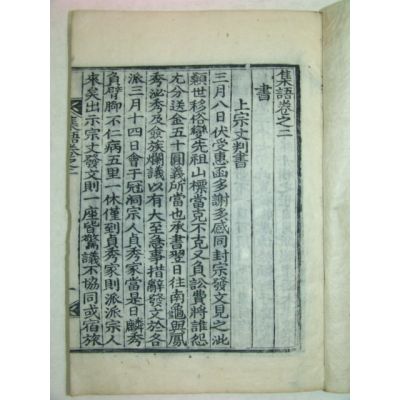 集語卷之二
書
上宗丈判書
三月八日伏受惠函多謝多感同封宗發文見之泚
顙世移俗變先祖山標當克不克又負訟費將誰怨
尤分送金五十圓義所當也承書翌日往南龜與鳳
秀泌秀及僉族爛議以有大至急事措辭發文於各
派三月十四日會于冠祠宗人貞秀家當是日麟秀
負臂脚不仁病五里一休僅到貞秀家則派派宗人
來矣出示宗丈發文則一座皆驚議不協同或宿旅
集語卷之二
一